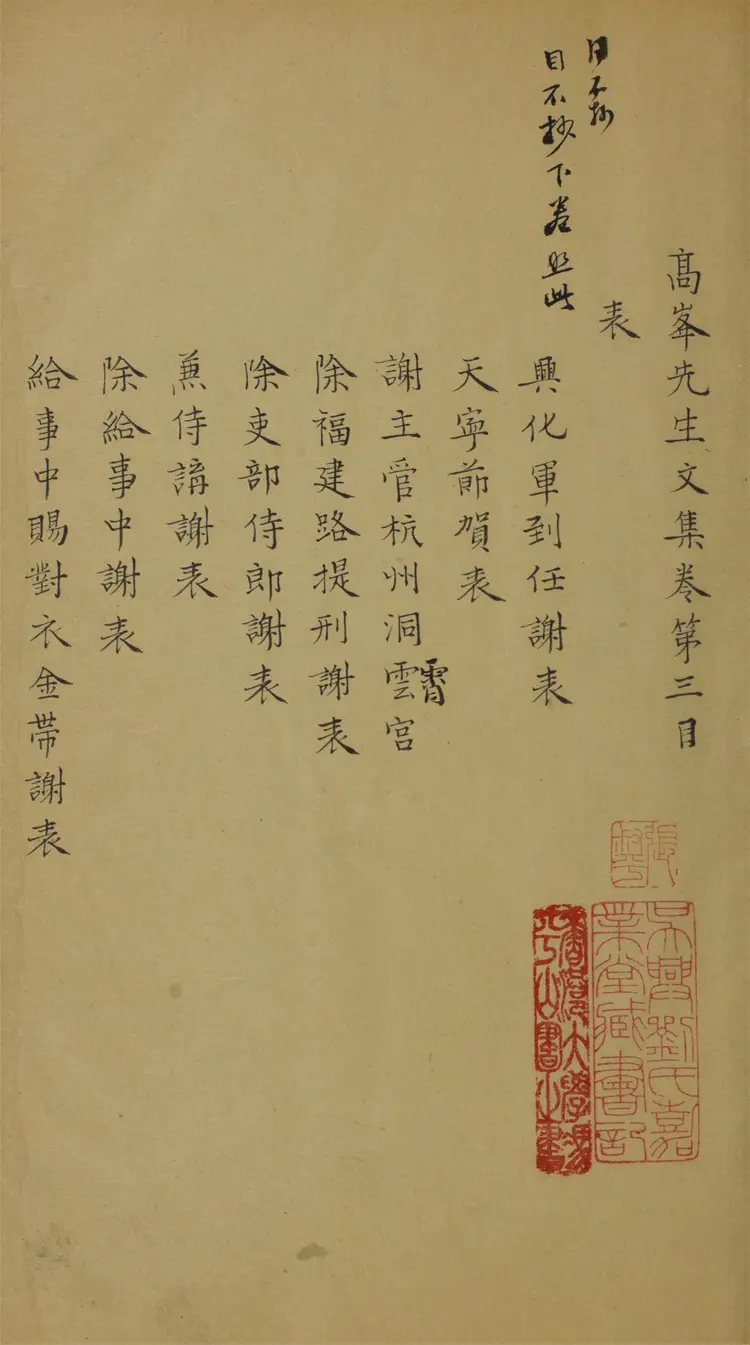 髙峯先生文集卷第三目
目不抄
表
目不抄下卷照此
興化軍到任謝表
天寧莭賀表
霄
謝主管杭州洞雲宮
除福建路提刑謝表
除吏部侍郎謝表
兼侍講謝表
除給事中謝表
給事中賜對衣金帶謝表
吳興劉氏嘉
業堂藏書記
香港大學馮